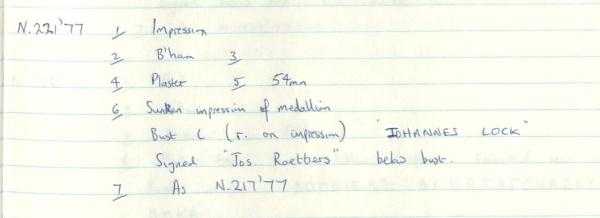 N.221'77 1 Impression
2 B'ham 3
4 Plaster 5 54mm
6 Sunken impression of medallion
Bust L. (r. on impression) "IOHANNES LOCK"
Signed "Jos. Roettbers" below bust.
7 As N.217'77